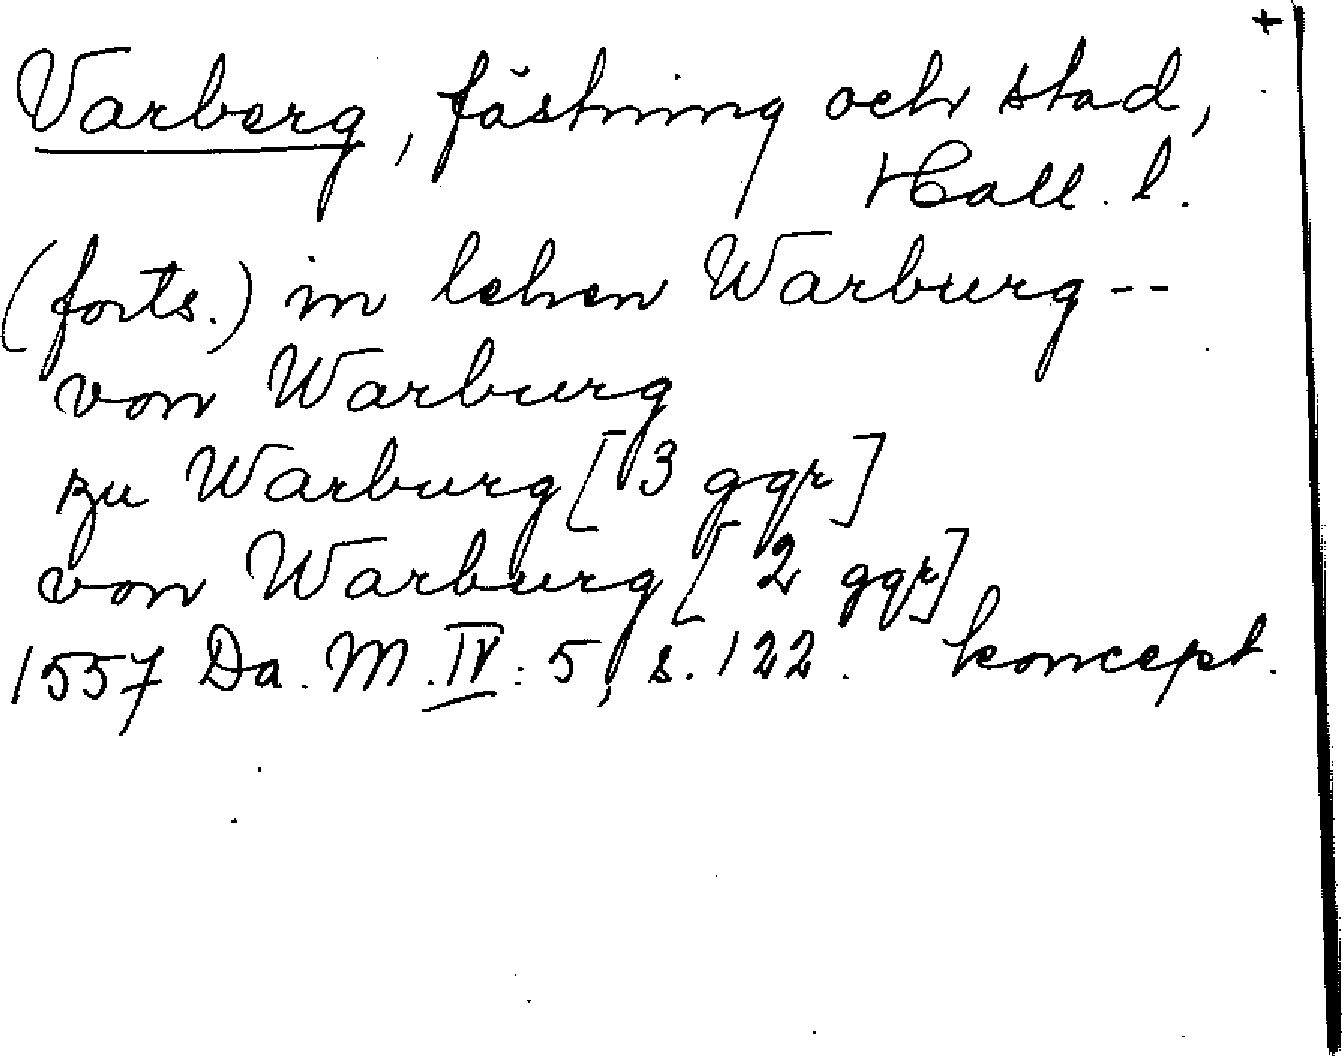 +
Varberg, fästning och stad,
Hall. l.
(forts.) in lehen Warburg --
von Warburg
zu Warburg [3 ggr]
von Warburg [2 ggr]
1557 Da. M. IV: 5, s. 122. koncept.